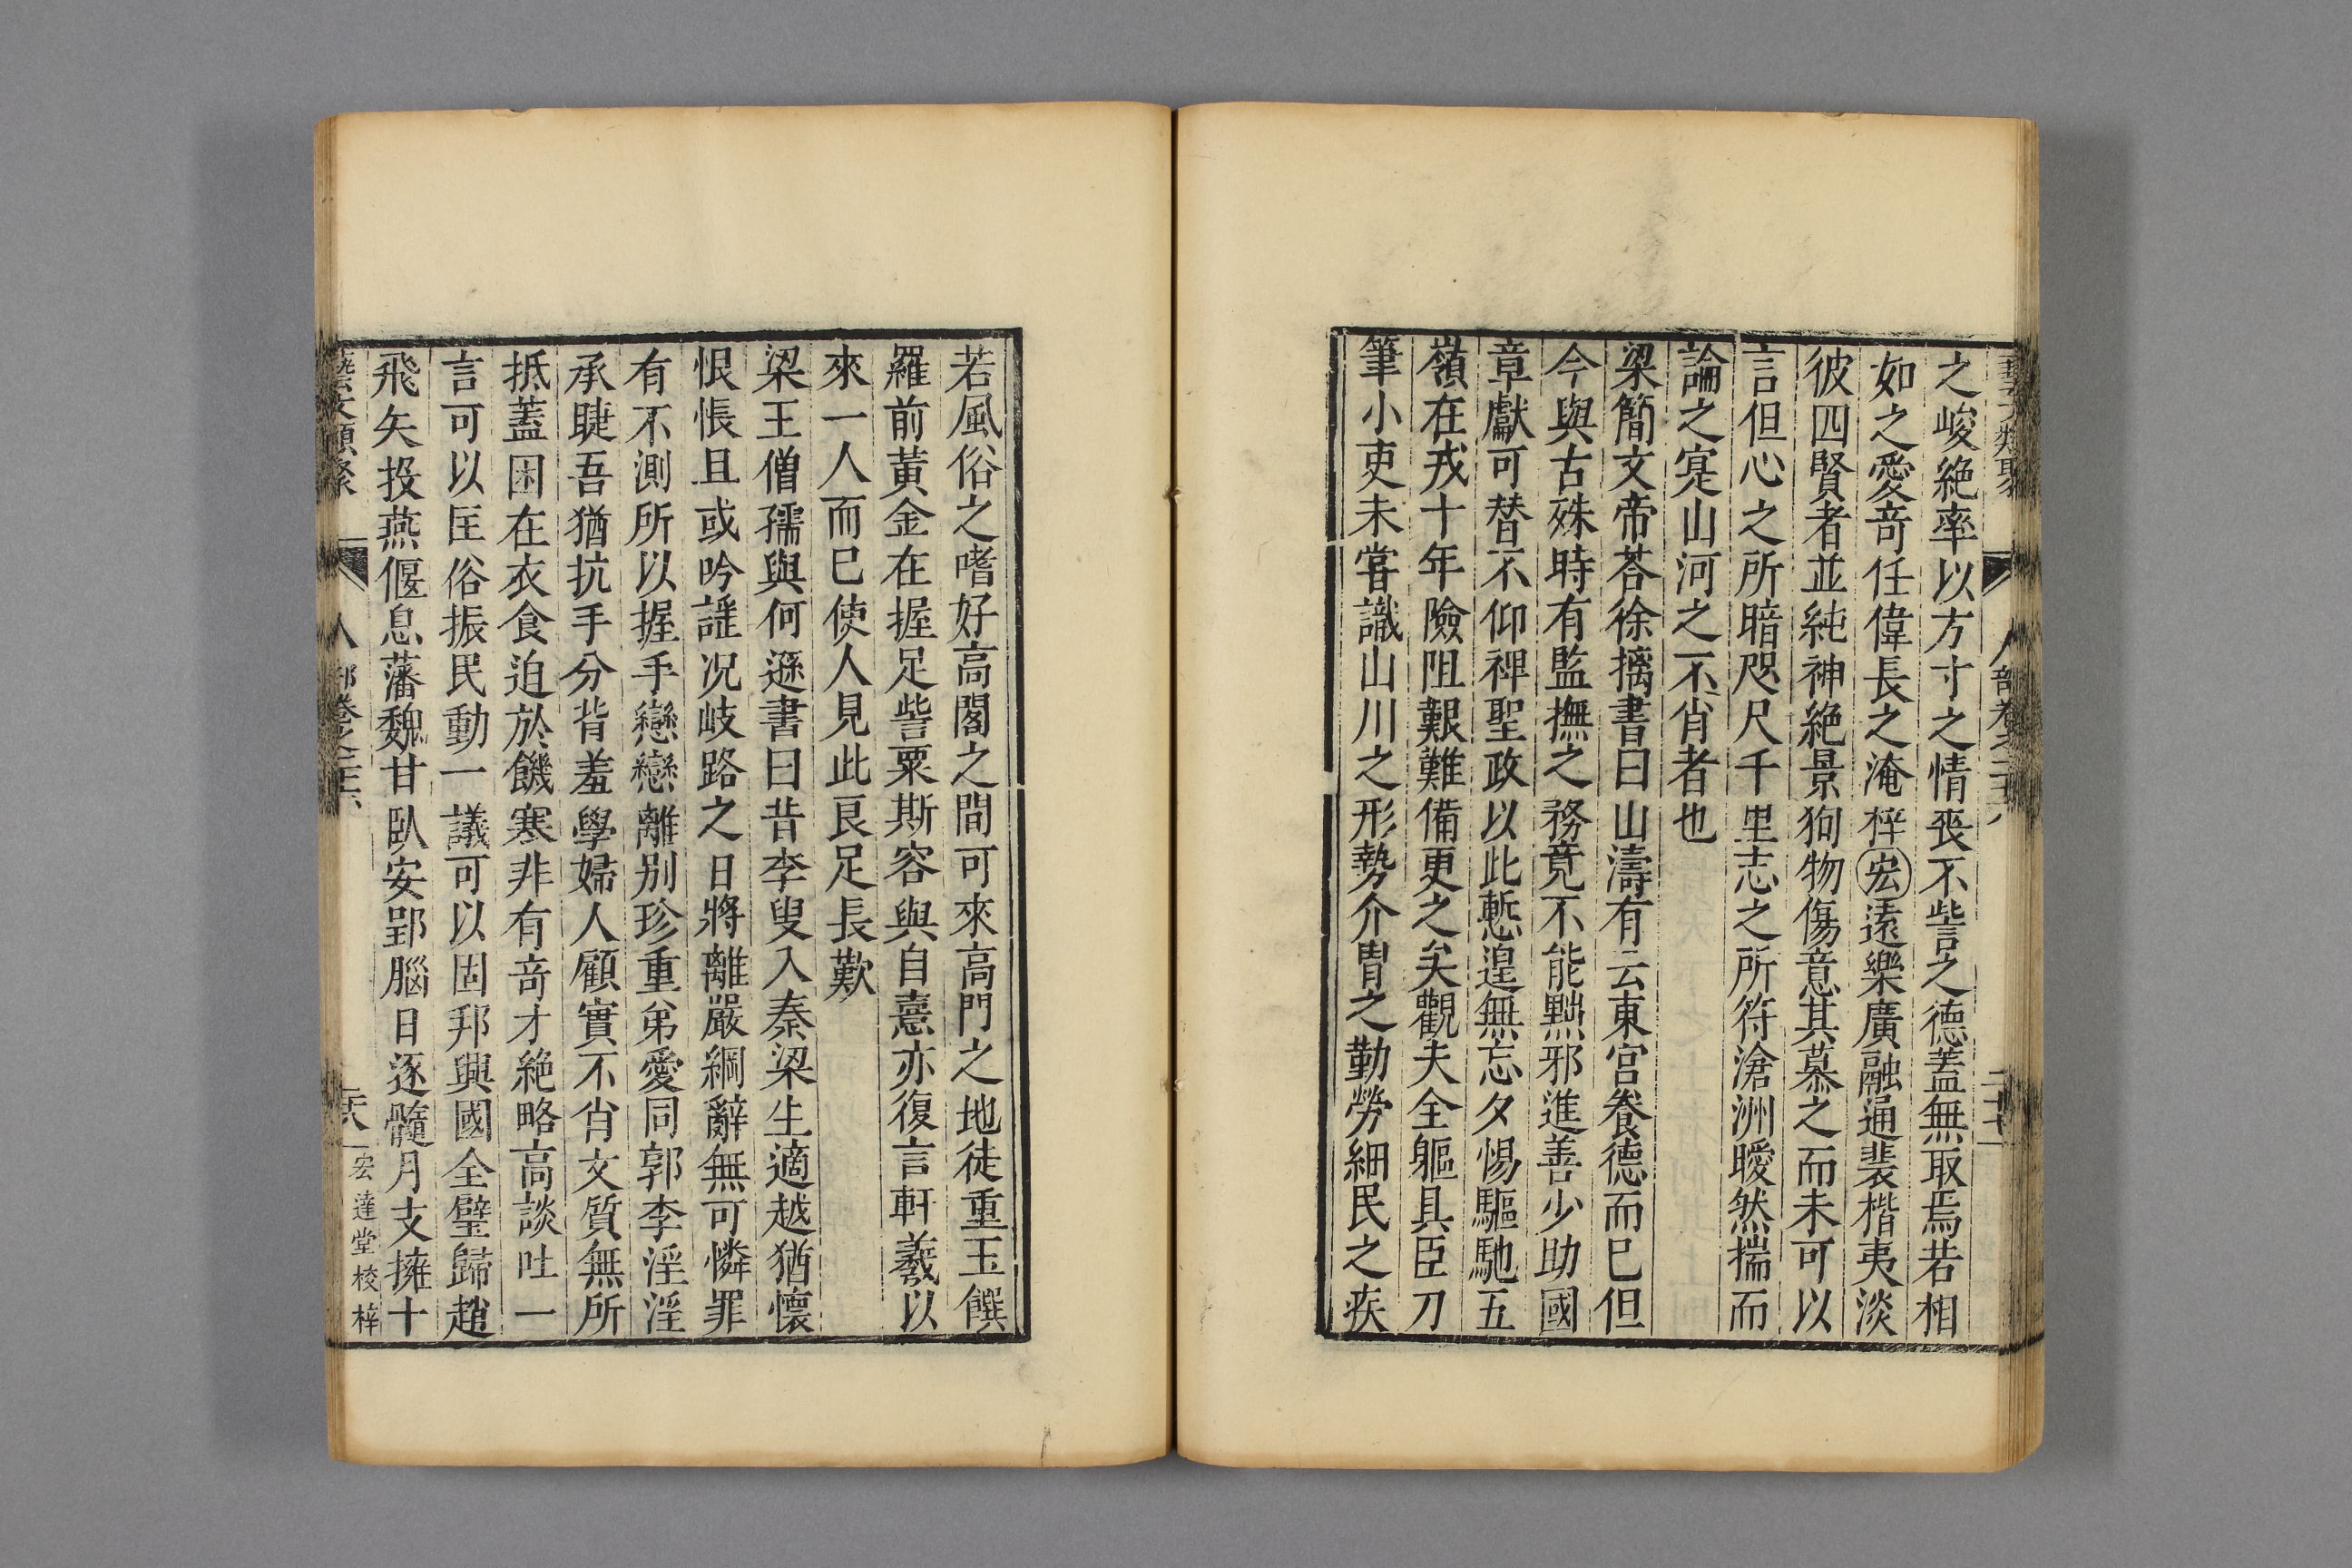 之峻絶率以方寸之情喪不訾之德蓋無取焉若相
如之愛竒任偉長之淹梓宏逺樂廣融通裴楷夷淡
彼四賢者並純神絶景狥物傷意其慕之而未可以
言但心之所暗咫尺千里志之所符滄洲曖然揣而
論之寔山河之不肖者也
梁簡文帝荅徐摛書曰山濤有云東宮養德而已但
今與古殊時有監撫之務竟不能黜邪進善少助國
章獻可替不仰裨聖政以此慙遑無忘夕惕驅馳五
嶺在戎十年險阻艱難備更之矣觀夫全軀具臣刀
筆小吏未嘗識山川之形勢介胄之勤勞細民之疾
若風俗之嗜好高閣之間可來高門之地徒重玉饌
羅前黃金在握足訾粟斯容與自憙亦復言軒羲以
來一人而已使人見此良足長歎
梁王僧孺與何遜書曰昔李叟入秦梁生適越猶懷
恨悵且或吟謡况岐路之日將離嚴綱辭無可憐罪
有不測所以握手戀戀離别珍重弟愛同郭李淫淫
承睫吾猶抗手分背羞學婦人顧實不肖文質無所
抵蓋困在衣食迫於饑寒非有竒才絶略高談吐一
言可以匡俗振民動一議可以固邦興國全璧歸趙
飛矢投燕偃息藩魏甘卧安郢腦日逐髓月支擁十
宏達堂校梓